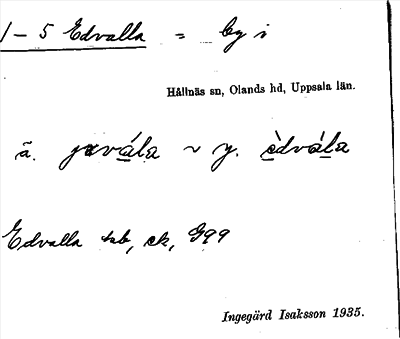 1-5 Edvalla = by i
Hållnäs sn, Olands hd, Uppsala län.
ä. jæválа ~ y. èdvála
Edvalla tab, ek, G99
Ingegärd Isaksson 1935.